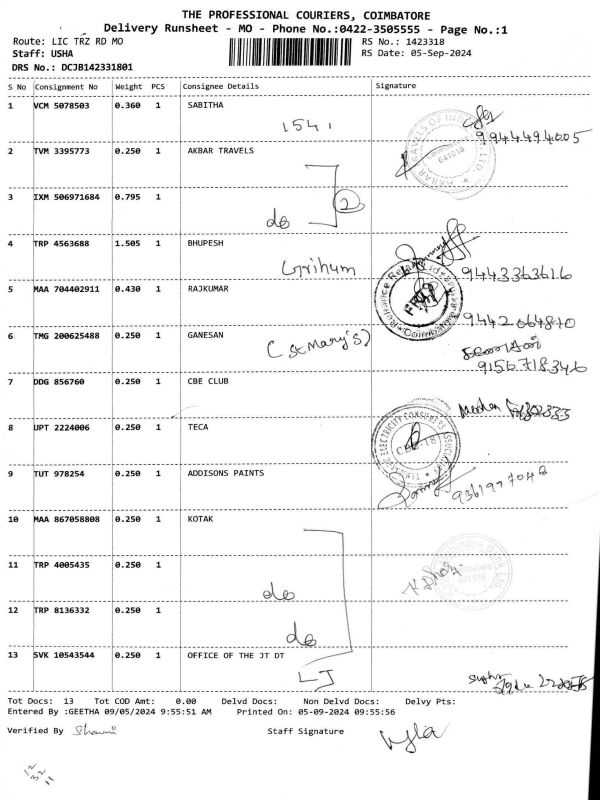 THE PROFESSIONAL COURIERS, COIMBATORE
Delivery Runsheet - MO - Phone No.:0422-3505555 - Page No.:1
Route: LIC TRZ RD MO
RS No.: 1423318
Staff: USHA
RS Date: 05-Sep-2024
DRS No.: DCJB142331801
S No Consignment No Weight PCS Consignee Details Signature
1 VCM 5078503 0.360 1 SABITHA
1541
9944494005
2 TVM 3395773 0.250 1 AKBAR TRAVELS
3 IXM 506971684 0.795 1
2
do
4 TRP 4563688 1.505 1 BHUPESH
Grihum
9443363616
5 MAA 704402911 0.430 1 RAJKUMAR
9442064810
6 TMG 200625488 0.250 1 GANESAN
(St Mary's)
9156718346
7 DDG 856760 0.250 1 CBE CLUB
8 UPT 2224006 0.250 1 TECA
9 TUT 978254 0.250 1 ADDISONS PAINTS
9361977048
10 MAA 867058808 0.250 1 KOTAK
11 TRP 4005435 0.250 1
do
12 TRP 8136332 0.250 1
do
13 SVK 10543544 0.250 1 OFFICE OF THE JT DT
LJ
Tot Docs: 13 Tot COD Amt: 0.00 Delvd Docs: Non Delvd Docs: Delvy Pts:
Entered By :GEETHA 09/05/2024 9:55:51 AM Printed On: 05-09-2024 09:55:56
Verified By
Staff Signature